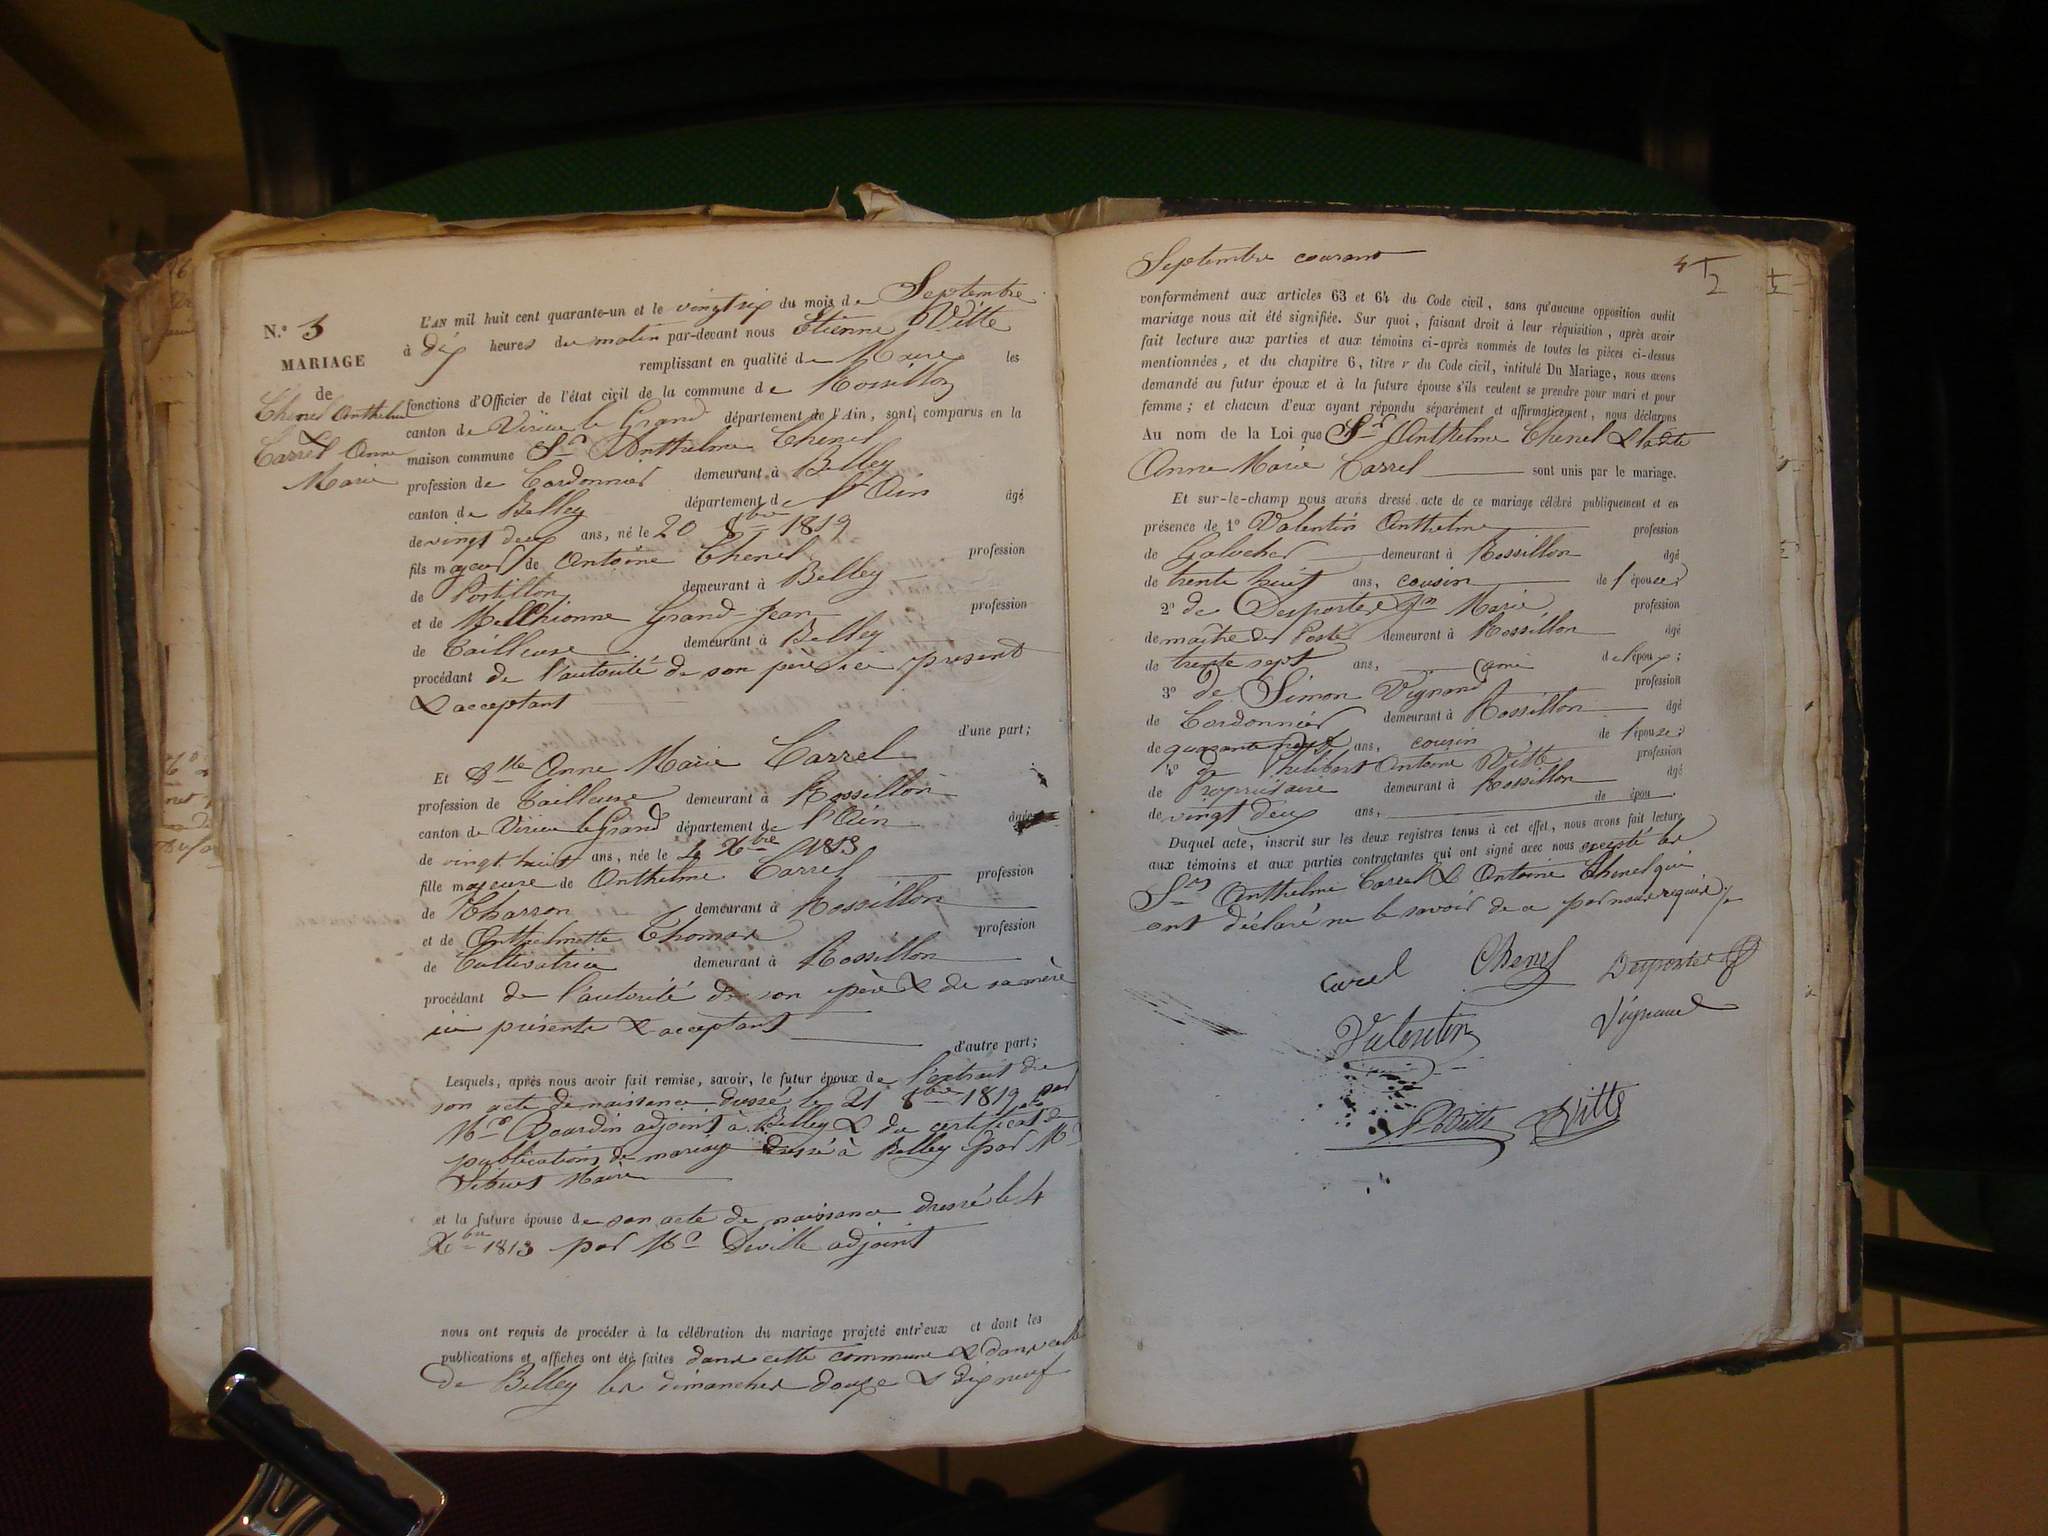 N.° 3
MARIAGE
de
Chenel Anthelme
&
Carrel Anne
Marie
L'AN mil huit cent quarante-un et le vingtsix du mois de Septembre
à dix heures du matin par-devant nous Etienne Vitte
remplissant en qualité de Maire les
fonctions d'Officier de l'état civil de la commune de Rossillon
canton de Virieu le Grand département de l'Ain, sont comparus en la
maison commune Sr Anthelme Chenel
profession de Cordonnier demeurant à Belley
canton de Belley département de l'Ain âgé
de vingt deux ans, né le 20 8bre 1819
fils majeur de Antoine Chenel profession
de Postillon demeurant à Belley
et de Melchionne Grand-Jean profession
de Tailleuse demeurant à Belley
procédant de l'autorité de son père ici présent
& acceptant
d'une part;
Et Dlle Anne Marie Carrel
profession de Tailleuse demeurant à Rossillon
canton de Virieu le Grand département de l'Ain âgée
de vingt huit ans, née le 4 Xbre 1813
fille majeure de Anthelme Carrel profession
de Charron demeurant à Rossillon
et de Anthelmette Thomas profession
de Cultivatrice demeurant à Rossillon
procédant de l'autorité de son père & de sa mère
ici présents & acceptant
d'autre part;
Lesquels, après nous avoir fait remise, savoir, le futur époux de l'extrait de
son acte de naissance dressé le 21 8bre 1819 par
Mr Bourdin adjoint à Belley & du certificat de
publications de mariage dressé à Belley par Mr
Maire
et la future épouse de son acte de naissance dressé le 4
Xbre 1813 par Mr Deville adjoint
nous ont requis de procéder à la célébration du mariage projeté entr'eux et dont les
publications et affiches ont été faites dans cette commune & dans celle
de Belley les dimanches douze & dix neuf
Septembre courant
conformément aux articles 63 et 64 du Code civil, sans qu'aucune opposition audit
mariage nous ait été signifiée. Sur quoi, faisant droit à leur réquisition, après avoir
fait lecture aux parties et aux témoins ci-après nommés de toutes les pièces ci-dessus
mentionnées, et du chapitre 6, titre v du Code civil, intitulé Du Mariage, nous avons
demandé au futur époux et à la future épouse s'ils veulent se prendre pour mari et pour
femme; et chacun d'eux ayant répondu séparément et affirmativement, nous déclarons
Au nom de la Loi que Sr Anthelme Chenel & la dite
Anne Marie Carrel sont unis par le mariage.
Et sur-le-champ nous avons dressé acte de ce mariage célébré publiquement et en
présence de 1° Valentin Anthelme profession
de Galocher demeurant à Rossillon âgé
de trente huit ans, cousin de l'épouse;
2° de Desportes Jn Marie profession
de maître de Poste demeurant à Rossillon âgé
de trente sept ans, ami de l'époux;
3° de Simon Vignand profession
de Cordonnier demeurant à Rossillon âgé
de quarante neuf ans, cousin de l'épouse;
4° de Philibert Antoine Vitte profession
de Propriétaire demeurant à Rossillon âgé
de vingt deux ans, de épou
Duquel acte, inscrit sur les deux registres tenus à cet effet, nous avons fait lecture
aux témoins et aux parties contractantes qui ont signé avec nous excepté les
Srs Anthelme Carrel & Antoine Chenel qui
ont déclaré ne le savoir de ce par nous requis
Carel Chenel Desportes
Valentin Vignand
Vitte Vitte